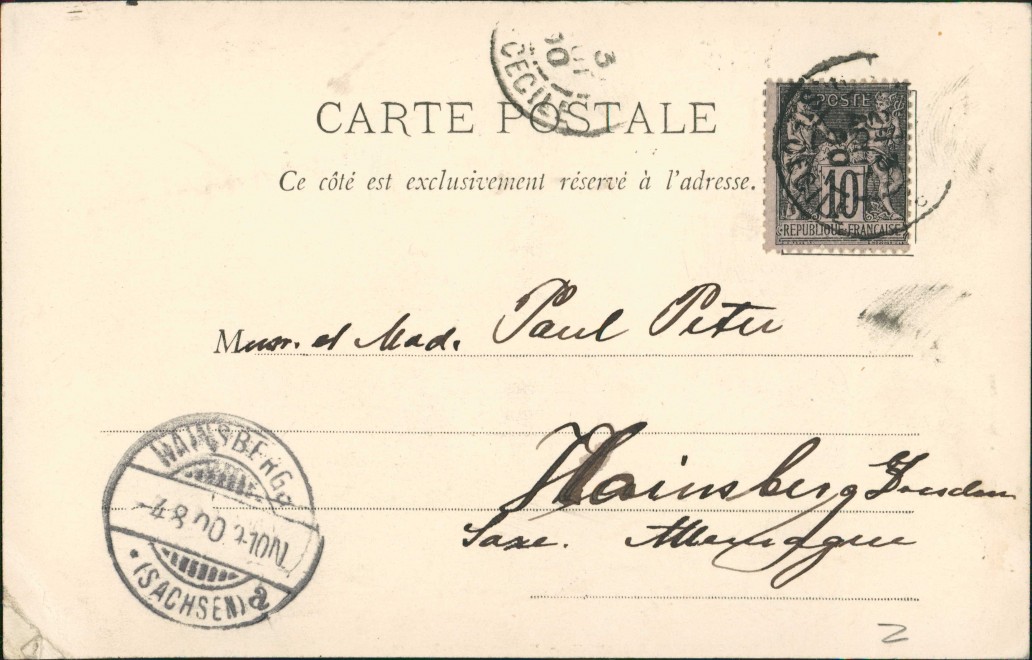 3
00
CECILE
CARTE POSTALE
Ce côté est exclusivement réservé à l'adresse.
POSTE
10
REPUBLIQUE FRANÇAISE
Monr. et Mad. Paul Peter
Hainsberg Dresden
Saxe. Allemagne
HAINSBERG
-4.8.00.9-10N.
* (SACHSEN) a
2